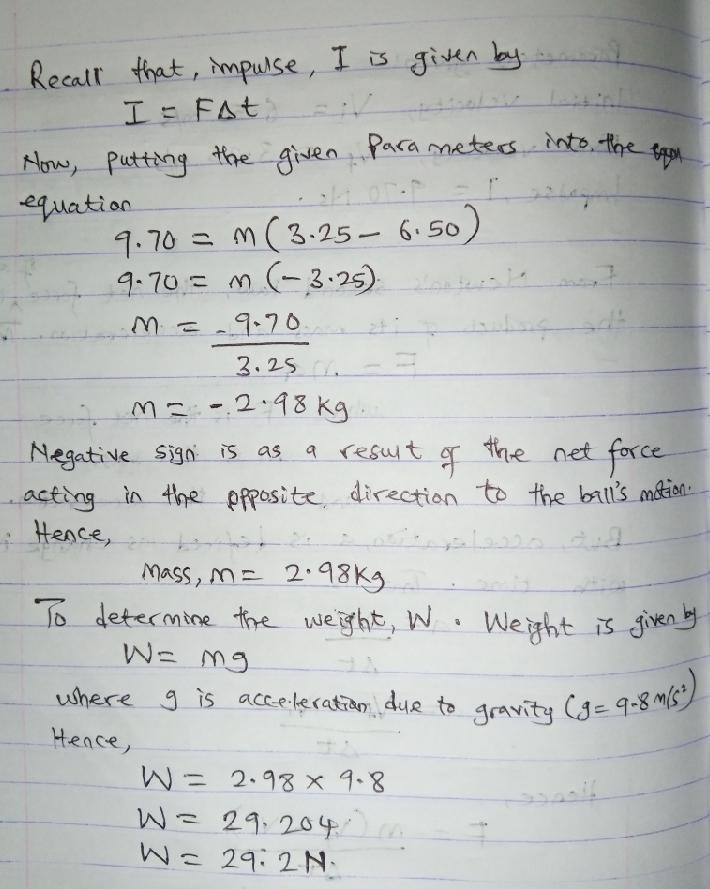 Recall that, impulse, I is given by
I = FΔt
Now, putting the given Parameters into the
equation
9.70 = m(3.25 - 6.50)
9.70 = m(-3.25)
m = -9.70
3.25
m = -2.98 kg
Negative sign is as a result of the net force
acting in the opposite direction to the ball's motion.
Hence,
Mass, m = 2.98kg
To determine the weight, W. Weight is given by
W = mg
where g is acceleration due to gravity (g = 9.8 m/s²)
Hence,
W = 2.98 x 9.8
W = 29.204
W = 29.2 N.